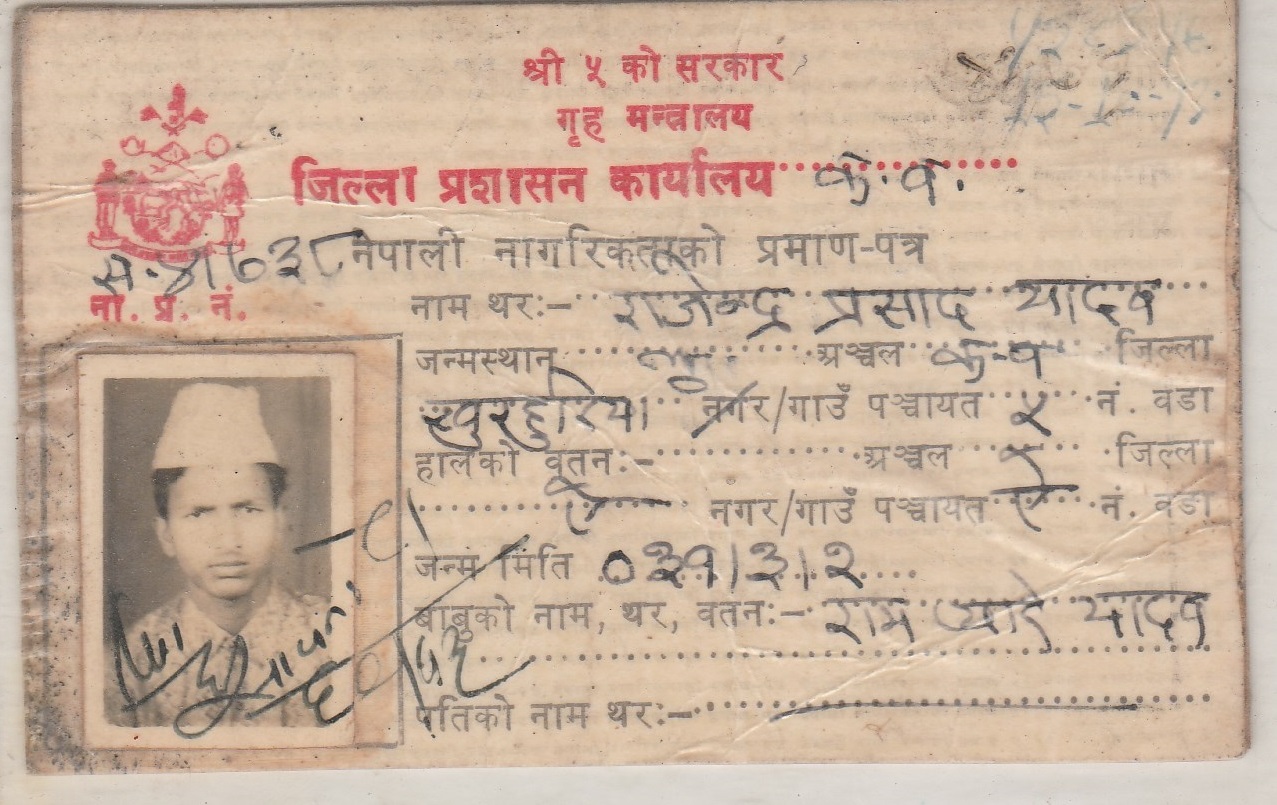 श्री ५ को सरकार
गृह मन्त्रालय
जिल्ला प्रशासन कार्यालय क.व.
नेपाली नागरिकताको प्रमाण-पत्र
ना. प्र. नं.
नाम थर:- राजेन्द्र प्रसाद यादव
जन्मस्थान अञ्चल क.व जिल्ला
खुरहुरिया नगर/गाउँ पञ्चायत ५ नं. वडा
हालको वतन:- अञ्चल जिल्ला
नगर/गाउँ पञ्चायत नं. वडा
जन्म मिति ०३१।३।२
बाबुको नाम, थर, वतन:- राम प्यारे यादव
पतिको नाम थर:-